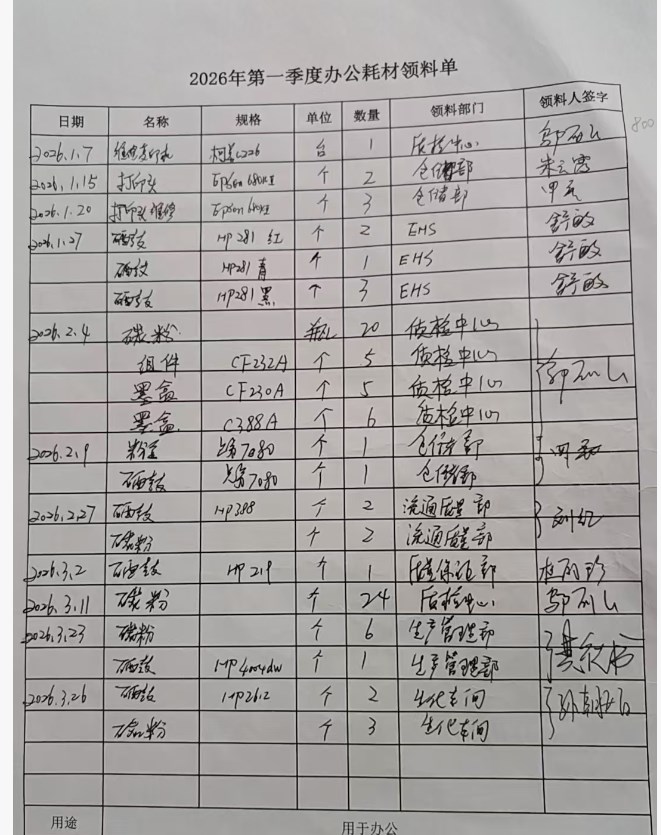 2026年第一季度办公耗材领料单
日期 名称 规格 单位 数量 领料部门 领料人签字
800
2026.1.7 柯美C226 台 1 质检中心
2026.1.15 打印头 Epson 680KII 个 2 仓储部
2026.1.20 打印头维修 Epson 680KII 个 3 仓储部
2026.1.27 硒鼓 HP281 红 个 2 EHS 舒敏
硒鼓 HP281 青 个 1 EHS 舒敏
硒鼓 HP281 黑 个 3 EHS 舒敏
2026.2.4 碳粉 瓶 20 质检中心
组件 CF232A 个 5 质检中心
墨盒 CF230A 个 5 质检中心
墨盒 C388A 个 6 质检中心
2026.2.9 粉盒 7080 个 1 仓储部
硒鼓 7080 个 1 仓储部
2026.2.27 硒鼓 HP388 个 2 流通质量部
碳粉 个 2 流通质量部
2026.3.2 硒鼓 HP219 个 1 质量保证部
2026.3.11 碳粉 个 24 质检中心
2026.3.23 碳粉 个 6 生产管理部
硒鼓 HP4004dw 个 1 生产管理部
2026.3.26 硒鼓 HP2612 个 2 生化车间
碳粉 个 3 生化车间
用途 用于办公